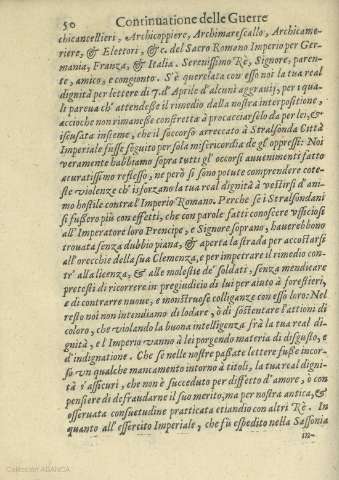 50 Continuatione delle Guerre
chicancellieri, Archicoppiere, Archimarescallo, Archicame-
riere, & Elettori, &c. del Sacro Romano Imperio per Ger-
mania, Franza, & Italia. Serenissimo Rè, Signore, paren-
te, amico, e congionto. S'è querelata con esso noi la tua real
dignità per lettere di 7. d'Aprile d'alcuni aggrauij, per i qua
li pareua ch'attendesse il rimedio dalla nostra interpositione,
accioche non rimanesse constretta à procacciarselo da per lei, &
iscusata insieme, che il soccorso arreccato à Stralsonda Città
Imperiale fusse seguito per sola misericordia de gl'oppressi: Noi
veramente habbiamo sopra tutti gl'occorsi auuenimenti fatto
accuratissimo riflesso, ne però si sono potute comprendere cote-
ste violenze ch'isforzano la tua real dignità à vestirsi d'ani-
mo hostile contra l'Imperio Romano. Perche se i Stralsondani
si fussero più con effetti, che con parole fatti conoscere vfficiosi
all'Imperatore loro Prencipe, e Signore soprano, hauerebbono
trouata senza dubbio piana, & aperta la strada per accostarsi
all'orecchie della sua Clemenza, e per impetrare il rimedio con-
tr'alla licenza, & alle molestie de' soldati, senza mendicare
pretesti di ricorrere in pregiudicio di lui per aiuto à forestieri,
e di contrarre nuoue, e monstruose colliganze con esso loro: Nel
resto noi non intendiamo di lodare, ò di sostentare l'attioni di
coloro, che violando la buona intelligenza frà la tua real di-
gnità, e l'Imperio vanno à lei porgendo materia di disgusto, e
d'indignatione. Che se nelle nostre passate lettere fusse incor-
so vn qualche mancamento intorno à titoli, la tua real digni-
tà s'assicuri, che non è succeduto per diffetto d'amore, ò con
pensiere di defraudarne il suo merito, ma per nostra antica, &
osseruata consuetudine pratticata etiandio con altri Rè. In
quanto all'essercito Imperiale, che fù espedito nella Sassonia
in-
Colección ABANCA